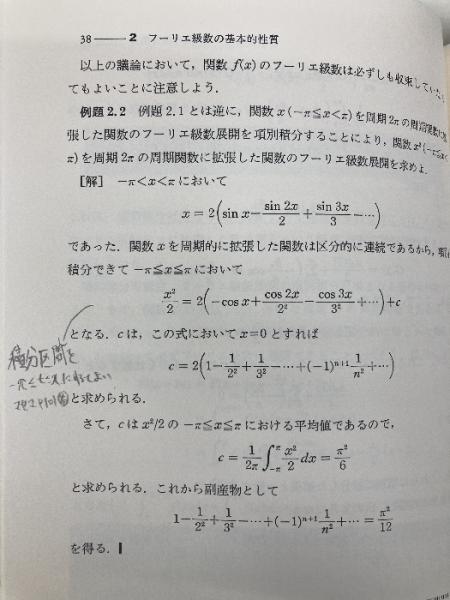 38 —— 2 フーリエ級数の基本的性質
以上の議論において,関数 f(x) のフーリエ級数は必ずしも収束してい
てもよいことに注意しよう.
例題 2.2 例題 2.1 とは逆に,関数 x (−π≦x<π) を周期 2π の周期関数に
張した関数のフーリエ級数展開を項別積分することにより,関数 x² (−π≦x<
π) を周期 2π の周期関数に拡張した関数のフーリエ級数展開を求めよ.
[解] −π<x<π において
x = 2(sin x − sin 2x/2 + sin 3x/3 − ⋯)
であった.関数 x を周期的に拡張した関数は区分的に連続であるから,
積分できて −π≦x≦π において
x²/2 = 2(−cos x + cos 2x/2² − cos 3x/3² + ⋯) + c
となる.c は,この式において x=0 とすれば
c = 2(1 − 1/2² + 1/3² − ⋯ + (−1)ⁿ⁺¹ 1/n² + ⋯)
積分区間を
と求められる.
さて,c は x²/2 の −π≦x≦π における平均値であるので,
c = 1/2π ∫_{−π}^{π} x²/2 dx = π²/6
と求められる.これから副産物として
1 − 1/2² + 1/3² − ⋯ + (−1)ⁿ⁺¹ 1/n² + ⋯ = π²/12
を得る.▌